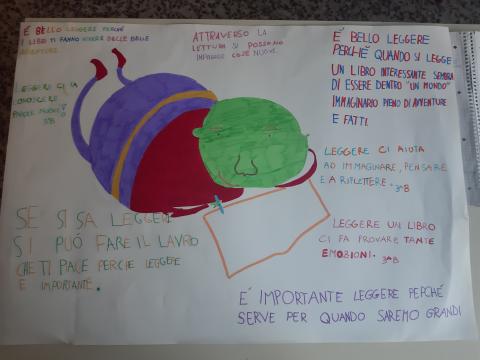 É BELLO LEGGERE PERCHÉ
I LIBRI TI FANNO VIVERE DELLE BELLE
AVVENTURE
LEGGERE CI FA
CONOSCERE
PAROLE NUOVE!
3ªB
ATTRAVERSO LA
LETTURA SI POSSONO
IMPARARE COSE NUOVE.
É BELLO LEGGERE
PERCHÉ QUANDO SI LEGGE
UN LIBRO INTERESSANTE SEMBRA
DI ESSERE DENTRO "UN MONDO"
IMMAGINARIO PIENO DI AVVENTURE
E FATTI.
LEGGERE CI AIUTA
AD IMMAGINARE, PENSARE
E A RIFLETTERE. 3ªB
LEGGERE UN LIBRO
CI FA PROVARE TANTE
EMOZIONI. 3ªB
SE SI SA LEGGERE
SI PUÓ FARE IL LAVRO
CHE TI PIACE PERCHE LEGGERE
E IMPORTANTE.
E' IMPORTANTE LEGGERE PEPCHÉ
SERVE PER QUANDO SAREMO GRANDI